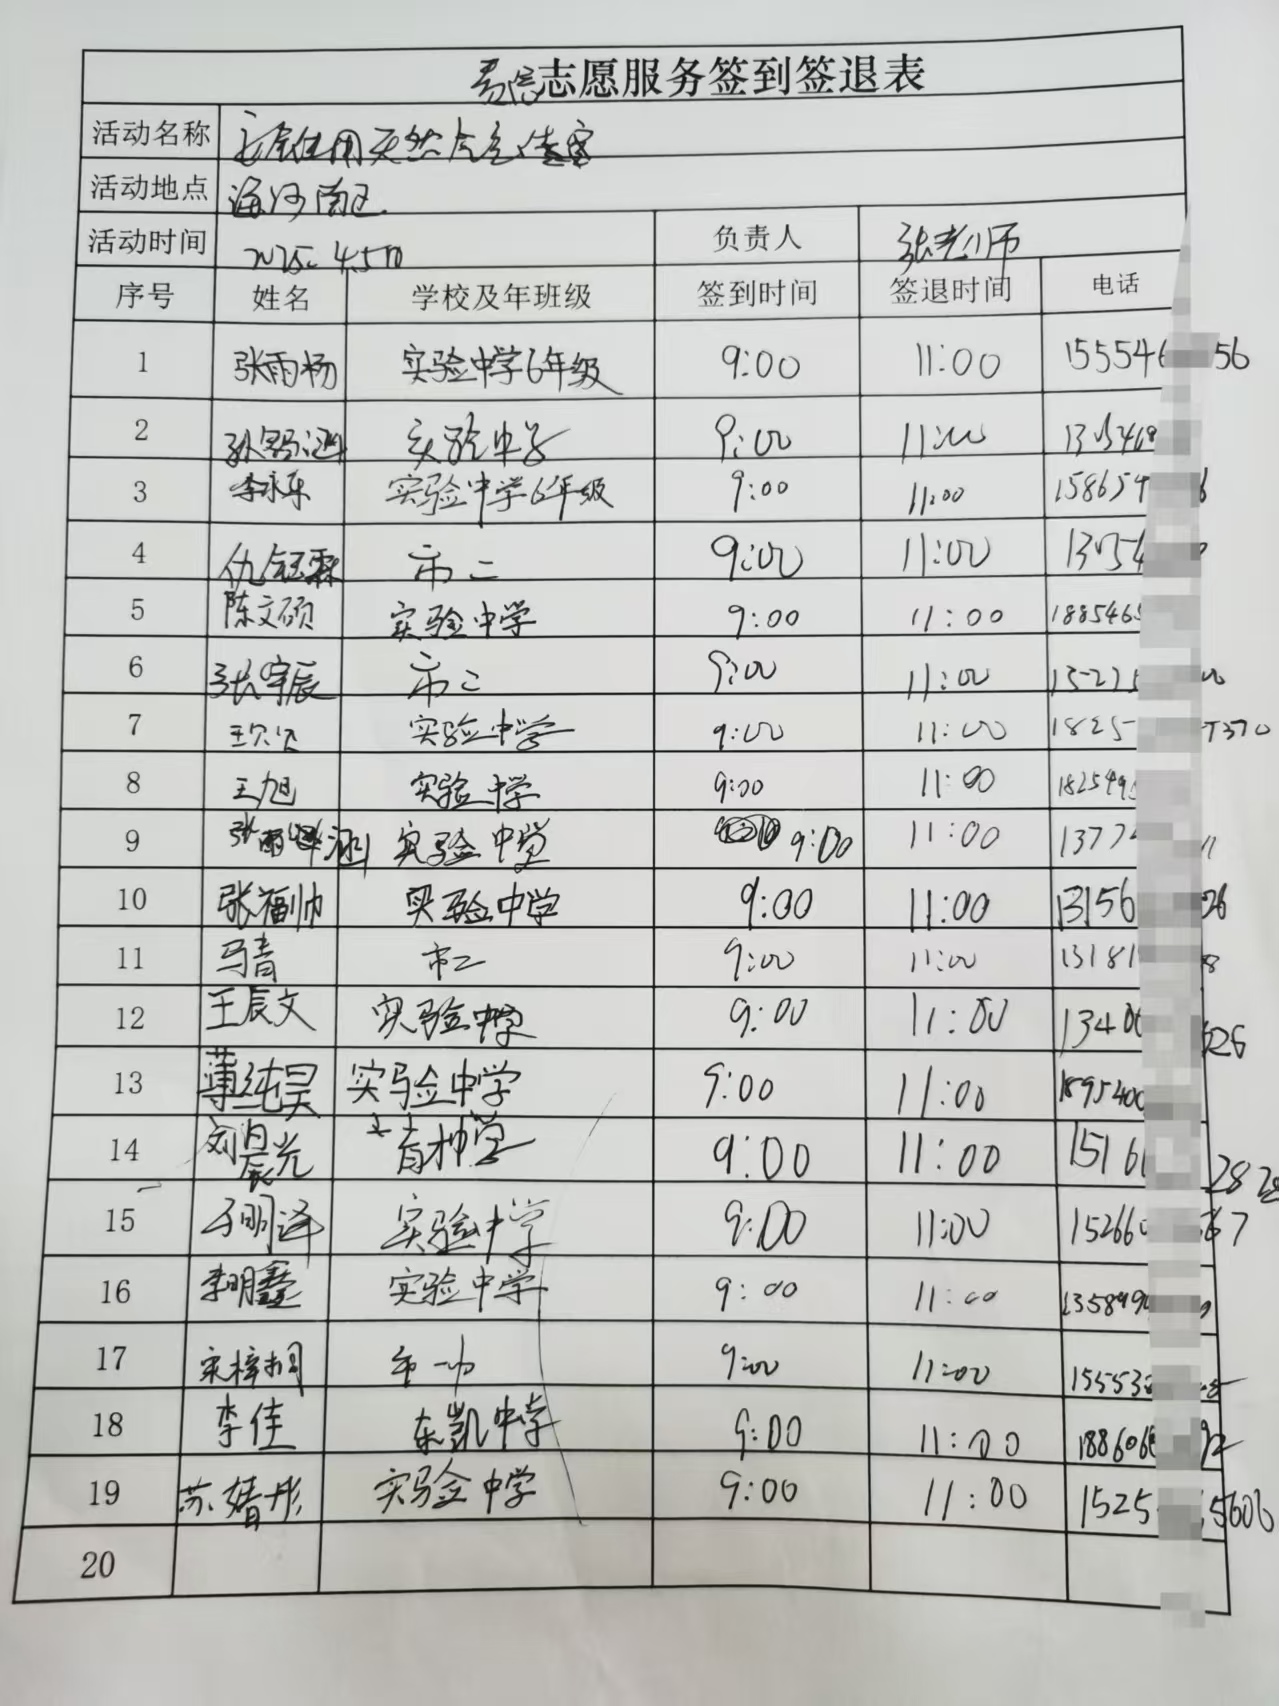 志愿服务签到签退表
活动名称 使用天然气
活动地点 海河南区
活动时间 2025. 4.5 负责人 张老师
序号 姓名 学校及年班级 签到时间 签退时间 电话
1 张雨杨 实验中学6年级 9:00 11:00 15554 56
2 实验中学 9:00 11:00
3 李永乐 实验中学6年级 9:00 11:00 158654
4 仇钰霖 市二 9:00 11:00
5 陈文硕 实验中学 9:00 11:00 188546
6 张宇辰 市二 9:00 11:00
7 实验中学 9:00 11:00 1825 370
8 王旭 实验中学 9:00 11:00 182549
9 张雨 涵 实验中学 9:00 11:00 1377
10 张福帅 实验中学 9:00 11:00 13156 26
11 马青 市二 9:00 11:00 13181 8
12 王辰文 实验中学 9:00 11:00 1340 626
13 薄纯昊 实验中学 9:00 11:00 1895400
14 刘晨光 9:00 11:00 1516 2828
15 实验中学 9:00 11:00 15266 67
16 李明鑫 实验中学 9:00 11:00 135894
17 宋梓桐 市一中 9:00 11:00 15553
18 李佳 东凯中学 9:00 11:00 188606 92
19 苏婧彤 实验中学 9:00 11:00 1525 5606
20